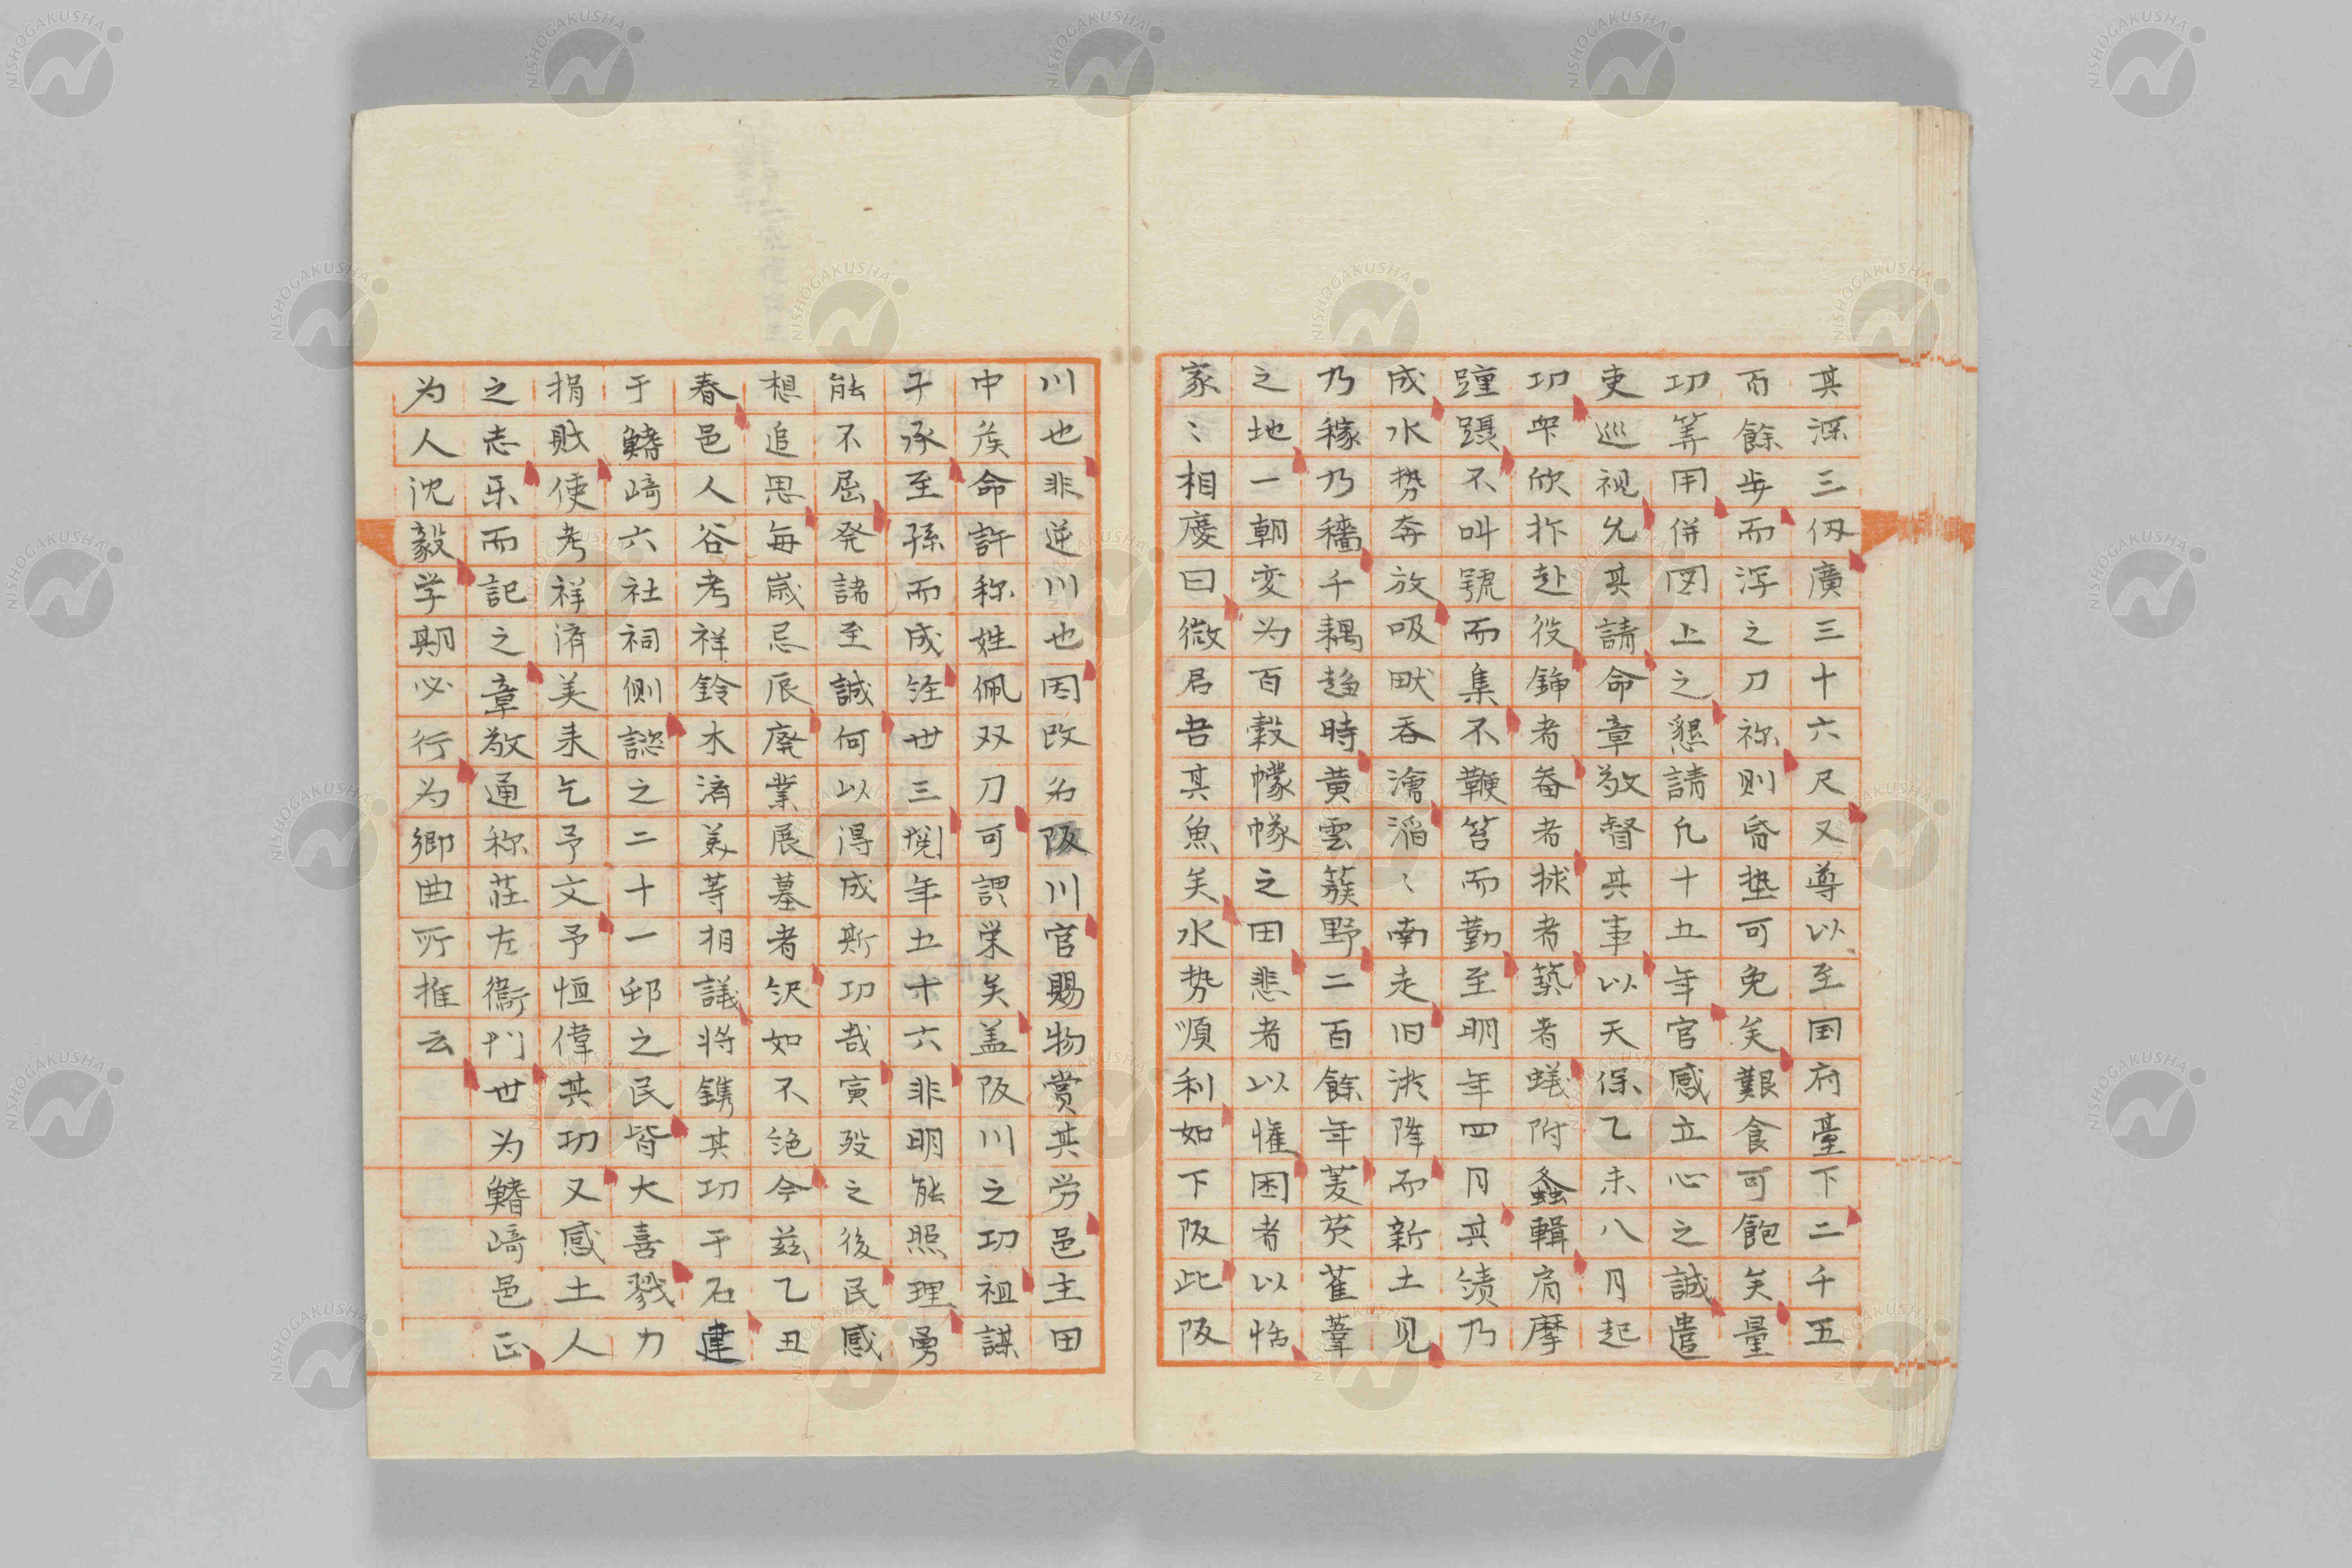 其深三仭廣三十六尺又導以至国府臺下二千五
百餘步而浮之刀祢則昏垫可免矣艱食可飽矣量
功筭用併図上之懇請凡十五年官感立心之誠遣
吏巡視允其請命章敬督其事以天保乙未八月起
功衆欣抃赴役鍤者畚者捄者築者蟻附螽輯肩摩
踵蹑不叫號而集不鞭笞而勤至明年四月其績乃
成水勢奔放吸畎吞澮滔〻南走旧淤降而新土見
乃稼乃穡千耦趍時黄雲簇野二百餘年菱芡萑葦
之地一朝変为百穀幪幪之田悲者以懽困者以恬
家〻相慶曰微君吾其魚矣水勢順利如下阪此阪
川也非逆川也因改名阪川官賜物賞其労邑主田
中矦命許称姓佩双刀可謂栄矣盖阪川之功祖謀
子承至孫而成経世三閲年五十六非明能照理勇
能不屈発諸至誠何以得成斯功哉寅歿之後民感
想追思每歳忌辰廃業展墓者沢如不絶今茲乙丑
春邑人谷考祥鈴木済美等相議将鐫其功于石建
于鰭﨑六社祠側諗之二十一邨之民皆大喜戮力
捐財使考祥済美来乞予文予恒偉其功又感土人
之志乐而記之章敬通称荘左衛门世为鰭﨑邑正
为人沈毅学期必行为鄉曲所推云
NISHOGAKUSHA